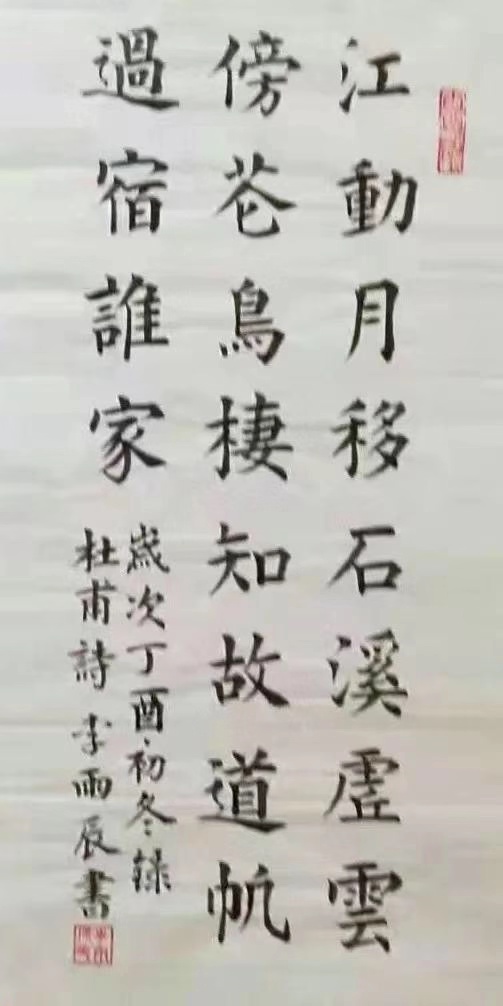 江動月移石溪虛雲
傍花鳥棲知故道帆
過宿誰家
歲次丁酉初冬錄
杜甫詩 李雨辰書